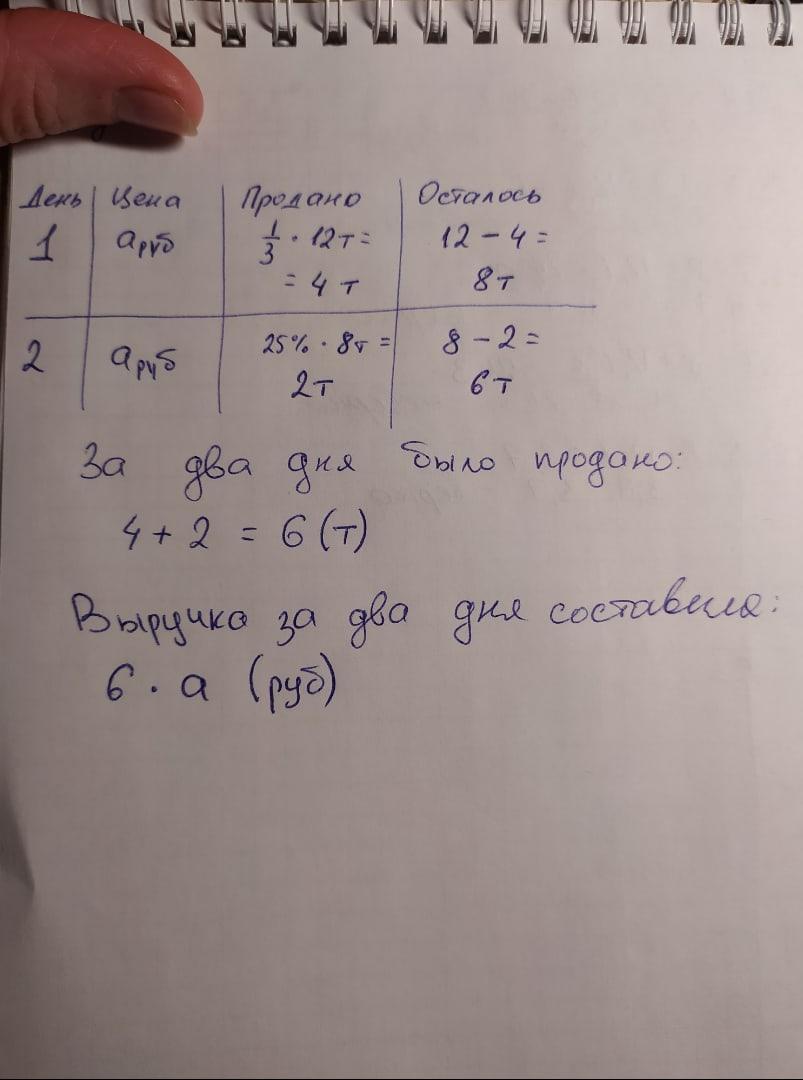 День Цена Продано Осталось
1 а руб 1/3 · 12т = 12 - 4 =
= 4 т 8т
2 а руб 25% · 8т = 8 - 2 =
2т 6т
За два дня было продано:
4 + 2 = 6 (т)
Выручка за два дня составила:
6 · а (руб)